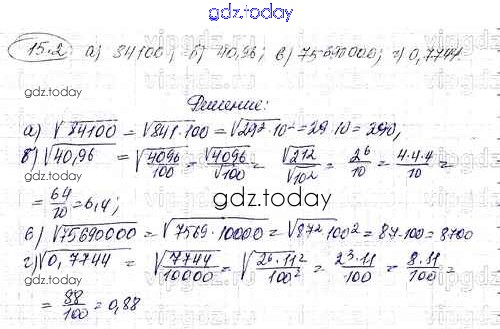 gdz.today
15.2 а) 84100; б) 40,96; в) 75690000; г) 0,7744
gdz.today
Решение:
gdz.today
а) √84100 = √841·100 = √29²·10² = 29·10 = 290,
б) √40,96 = √4096/100 = √4096/√100 = √2¹²/√10² = 2⁶/10 = 4·4·4/10 =
= 64/10 = 6,4;
gdz.today
в) √75690000 = √7569·10000 = √87²·100² = 87·100 = 8700
г) √0,7744 = √7744/10000 = √2⁶·11²/100² = 2³·11/100 = 8·11/100 =
= 88/100 = 0,88
gdz.today
gdz.today